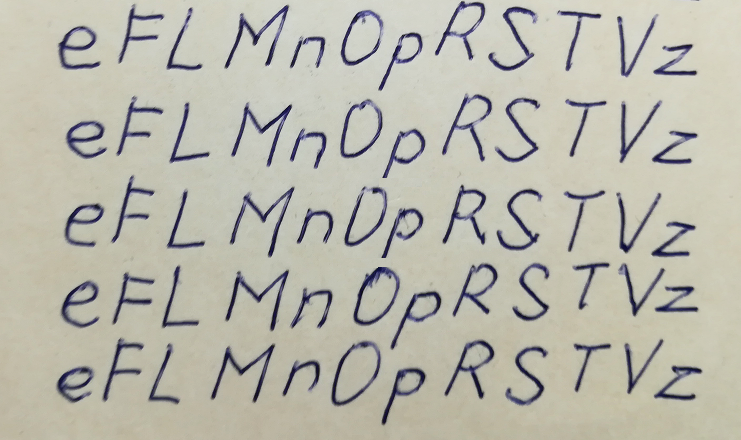 eFLMnOpRSTVz
eFLMnOpRSTVz
eFLMnOpRSTVz
eFLMnOpRSTVz
eFLMnOpRSTVz